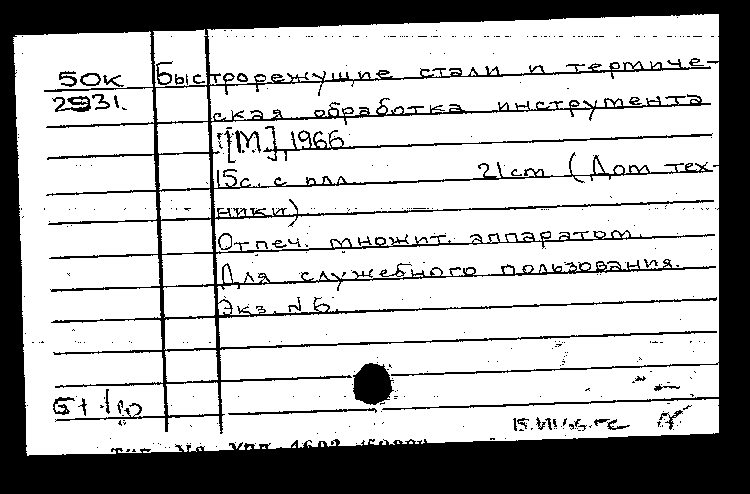 50К
2931.
Быстрорежущие стали и термиче-
ская обработка инструмента
[М.], 1966
15с. с илл 21 cm (Дом тех-
ники)
Отпеч. множит. аппаратом.
Для служебного пользования.
Экз. № 5.